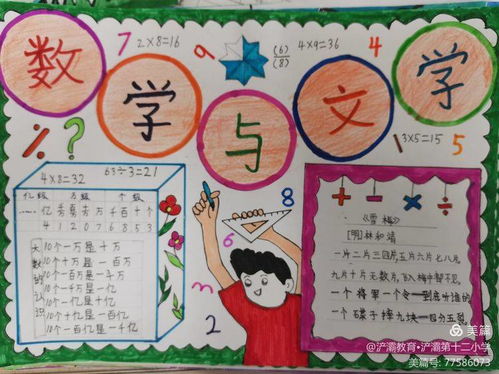 数学与文学
7
2×8=16
9
(6)
(8)
4×9=36
4
3×5=15
5
%
?
4×8=32
63÷3=21
亿级 万级 个级
……亿 千 百 十 万 千 百 十 个
4 1 2 0 7 6 8 5 3
大数的认识
10个一万是十万
10个十万是一百万
10个一百万是一千万
10个一千万是一亿
10个一亿是十亿
10个十亿是一百亿
10个一百亿是一千亿
8
6
2
+ - × ÷
《雪梅》
[明]林和靖
一片二片三四片,五片六片七八片
九片十片无数片,飞入梅中都不见
一个将军一个令 一到底听谁的
一个碟子摔九块 一四分五裂
美篇
@浐灞教育·浐灞第十二小学
美篇号: 77586073